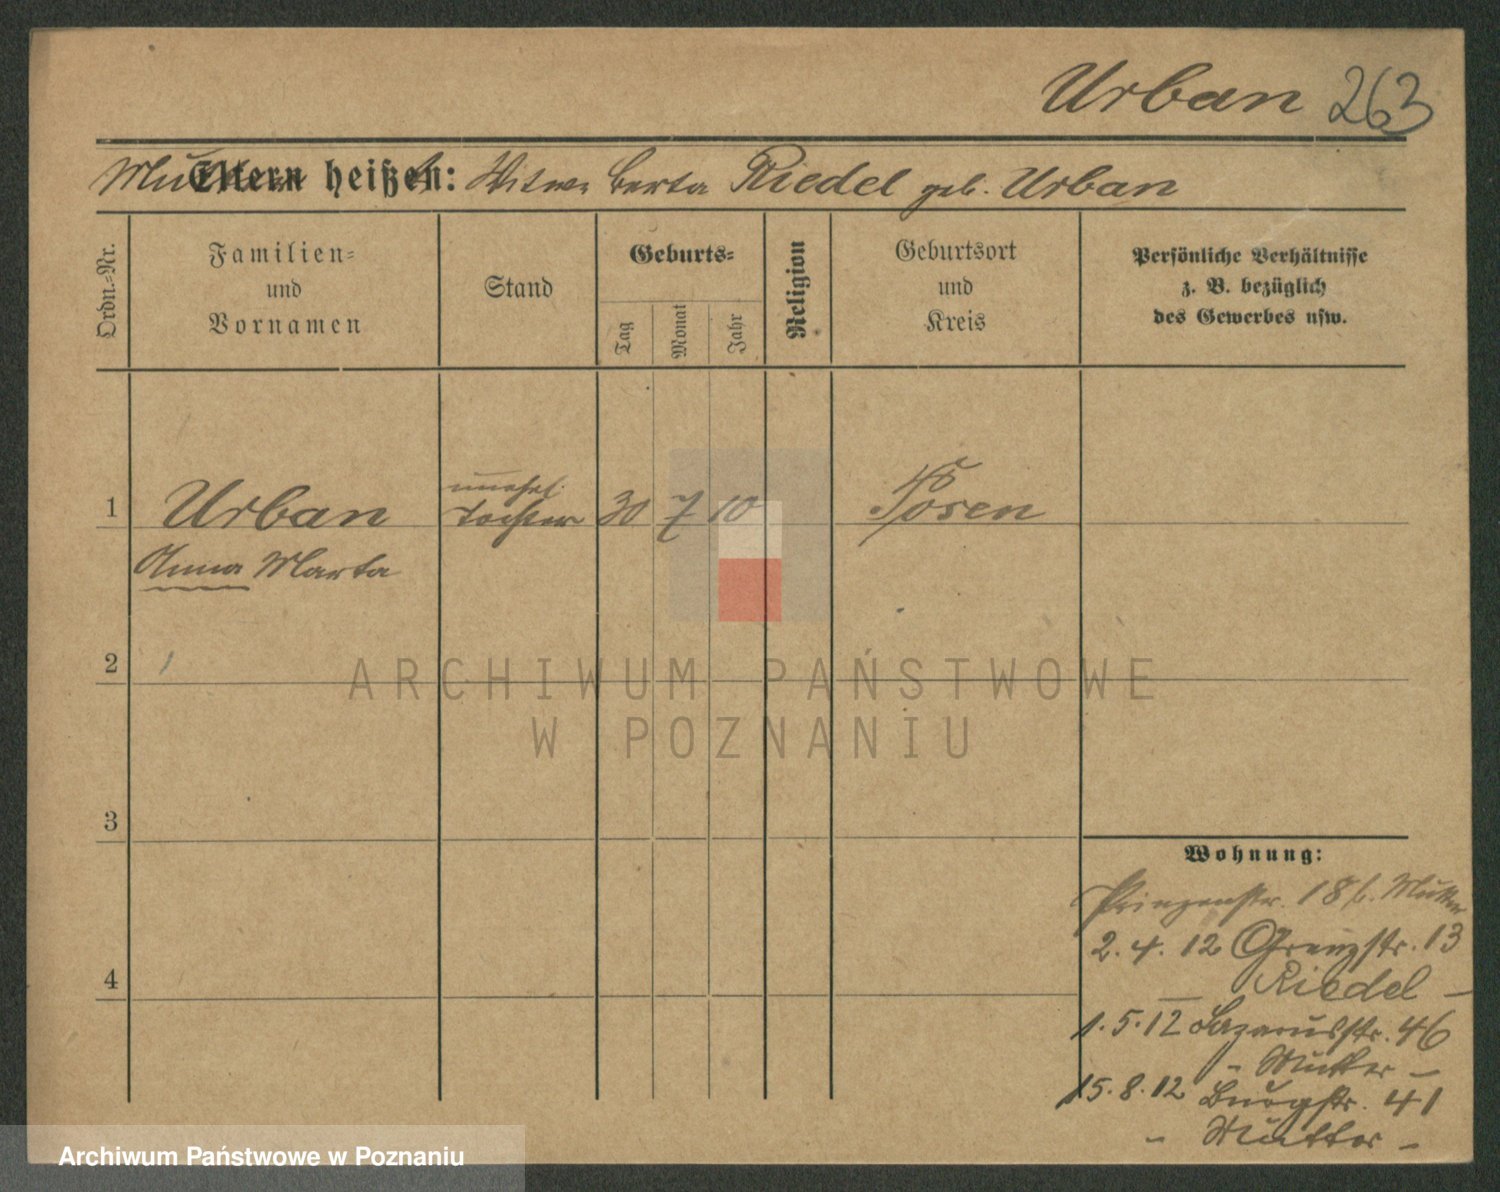 Urban 263
Mutter Eltern heißen: Witwe Berta Riedel geb. Urban
Ordn.-Nr.
Familien-
und
Vornamen
Stand
Geburts-
Tag
Monat
Jahr
Religion
Geburtsort
und
Kreis
Persönliche Verhältnisse
z. B. bezüglich
des Gewerbes usw.
unehel.
1 Urban Tochter 30 7 10 Posen
Anna Marta
2
ARCHIWUM PAŃSTWOWE
W POZNANIU
3
Wohnung:
Prinzenstr. 18 b. Mutter
2.4.12 Grenzstr. 13
Riedel -
4
1.5.12 Lazarusstr. 46
- Mutter -
15.8.12 Burgstr. 41
- Mutter -
Archiwum Państwowe w Poznaniu